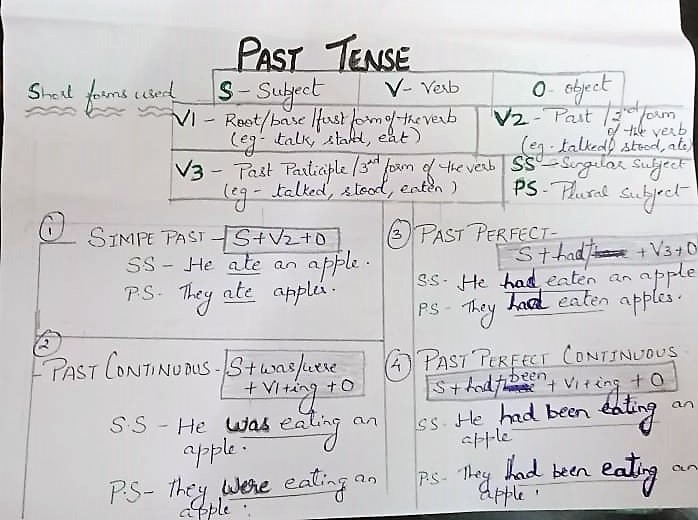 PAST TENSE
Short forms used
S - Subject V - Verb O - object
V1 - Root/base/first form of the verb
(eg: talk, stand, eat)
V2 - Past/2nd form
of the verb
(eg - talked, stood, ate)
V3 - Past Participle/3rd form of the verb
(eg - talked, stood, eaten)
SS - Singular Subject
PS - Plural Subject
① SIMPE PAST - S+V2+O
SS - He ate an apple.
P.S - They ate apples.
②
- PAST CONTINUOUS - S+was/were
+ V1+ing+O
S.S - He was eating an
apple.
P.S - They were eating an
apple.
③ PAST PERFECT -
S + had + V3+O
SS - He had eaten an apple
PS - They had eaten apples.
④ PAST PERFECT CONTINUOUS -
S + had + been + V1 + ing + O
SS - He had been eating an
apple
P.S - They had been eating an
apple.